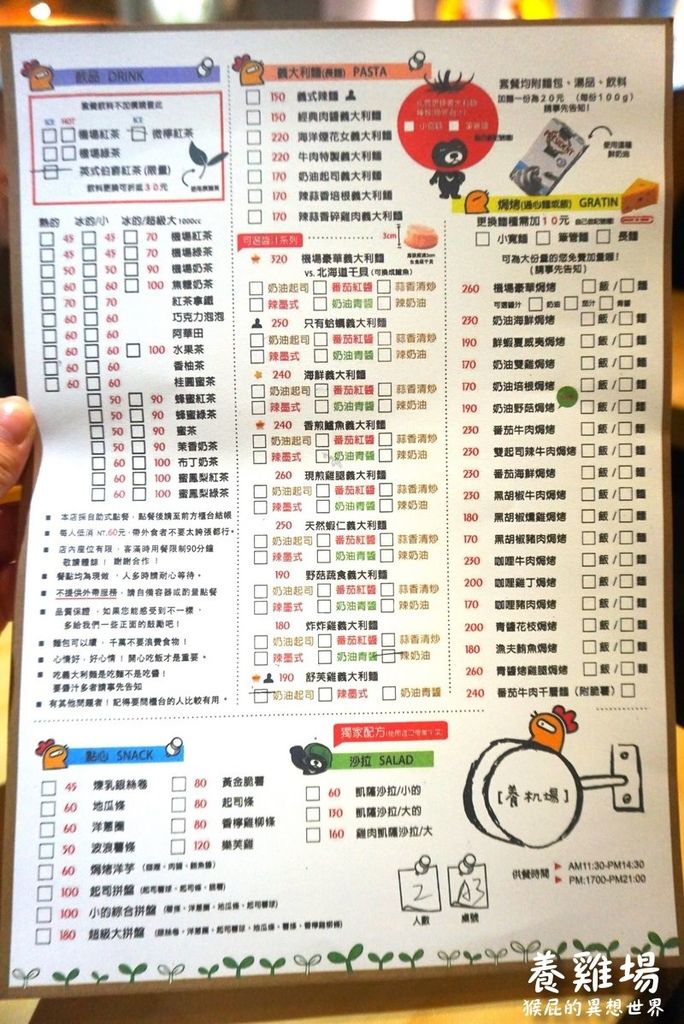 飲品 DRINK
套餐飲料不加價請看此
ICE HOT ICE
機場紅茶 微檸紅茶
機場綠茶
英式伯爵紅茶(限量)
飲料更換可折抵30元
熱的 冰的/小 冰的/超級大1000cc
45 45 70 機場紅茶
45 45 70 機場綠茶
50 50 90 機場奶茶
60 60 100 焦糖奶茶
70 70 紅茶拿鐵
60 60 巧克力泡泡
60 60 阿華田
60 60 100 水果茶
60 60 香柚茶
60 60 桂圓蜜茶
50 90 蜂蜜紅茶
50 90 蜂蜜綠茶
50 90 蜜茶
50 90 茉香奶茶
60 100 布丁奶茶
60 100 蜜鳳梨紅茶
60 100 蜜鳳梨綠茶
本店採自助式點餐,點餐後請至前方櫃台結帳
每人低消 NT.60元,帶外食者不要太誇張都行。
店內座位有限,客滿時用餐限制90分鐘
敬請體諒!謝謝合作!
餐點均為現做,人多時請耐心等待。
不提供外帶服務,請自備容器或酌量點餐
品質保證,如果您能感受到不一樣,
多給我們一些正面的鼓勵吧!
麵包可以續,千萬不要浪費食物!
心情好,好心情!開心吃飯才是重要。
吃義大利麵是吃麵不是吃醬!
要醬汁多者請事先告知
有其他問題者!記得要問櫃台的人比較有用。
義大利麵(長麵) PASTA
150 義式辣麵
150 經典肉醬義大利麵
220 海洋煙花女義大利麵
220 牛肉特製義大利麵
170 奶油起司義大利麵
170 辣蒜香培根義大利麵
170 辣蒜香碎雞肉義大利麵
可選醬汁系列
3cm
320 機場豪華義大利麵
vs. 北海道干貝(可換成鱸魚)
奶油起司 番茄紅醬 蒜香清炒
辣墨式 奶油青醬 辣奶油
250 只有蛤蠣義大利麵
奶油起司 番茄紅醬 蒜香清炒
辣墨式 奶油青醬 辣奶油
240 海鮮義大利麵
奶油起司 番茄紅醬 蒜香清炒
辣墨式 奶油青醬 辣奶油
240 香煎鱸魚義大利麵
奶油起司 番茄紅醬 蒜香清炒
辣墨式 奶油青醬 辣奶油
260 現煎雞腿義大利麵
奶油起司 番茄紅醬 蒜香清炒
辣墨式 奶油青醬 辣奶油
250 天然蝦仁義大利麵
奶油起司 番茄紅醬 蒜香清炒
辣墨式 奶油青醬 辣奶油
190 野菇蔬食義大利麵
奶油起司 番茄紅醬 蒜香清炒
辣墨式 奶油青醬 辣奶油
180 炸炸雞義大利麵
奶油起司 番茄紅醬 蒜香清炒
辣墨式 奶油青醬 辣奶油
190 舒芙雞義大利麵
奶油起司 辣墨式 奶油青醬
套餐均附麵包、湯品、飲料
加麵一份為20元 (每份100g)
請事先告知!
使用這種
鮮奶油
焗烤(通心麵或飯) GRATIN
更換麵種需加10元
小寬麵 筆管麵 長麵
可為大份量的您免費加量喔!
(請事先告知)
260 機場豪華焗烤 飯/麵
可選醬汁 奶油 茄汁 青醬
230 奶油海鮮焗烤 飯/麵
190 鮮蝦夏威夷焗烤 飯/麵
170 奶油雙雞焗烤 飯/麵
170 奶油培根焗烤 飯/麵
190 奶油野菇焗烤 飯/麵
230 番茄牛肉焗烤 飯/麵
230 雙起司辣牛肉焗烤 飯/麵
230 番茄海鮮焗烤 飯/麵
230 黑胡椒牛肉焗烤 飯/麵
180 黑胡椒燻雞焗烤 飯/麵
170 黑胡椒豬肉焗烤 飯/麵
230 咖哩牛肉焗烤 飯/麵
200 咖哩雞丁焗烤 飯/麵
170 咖哩豬肉焗烤 飯/麵
200 青醬花枝焗烤 飯/麵
180 漁夫鮪魚焗烤 飯/麵
260 青醬烤雞腿焗烤 飯/麵
240 番茄牛肉千層麵(附脆薯)
點心 SNACK
45 煉乳銀絲卷
60 地瓜條
60 洋蔥圈
50 波浪薯條
60 焗烤洋芋
100 起司拼盤
100 小的綜合拼盤
180 超級大拼盤
80 黃金脆薯
80 起司條
80 香檸雞柳條
120 樂芙雞
獨家配方
沙拉 SALAD
60 凱薩沙拉/小的
130 凱薩沙拉/大的
160 雞肉凱薩沙拉/大
2
人數
A3
桌號
[養机場]
供餐時間 AM11:30-PM14:30
PM:1700-PM21:00
養雞場
猴屁的異想世界